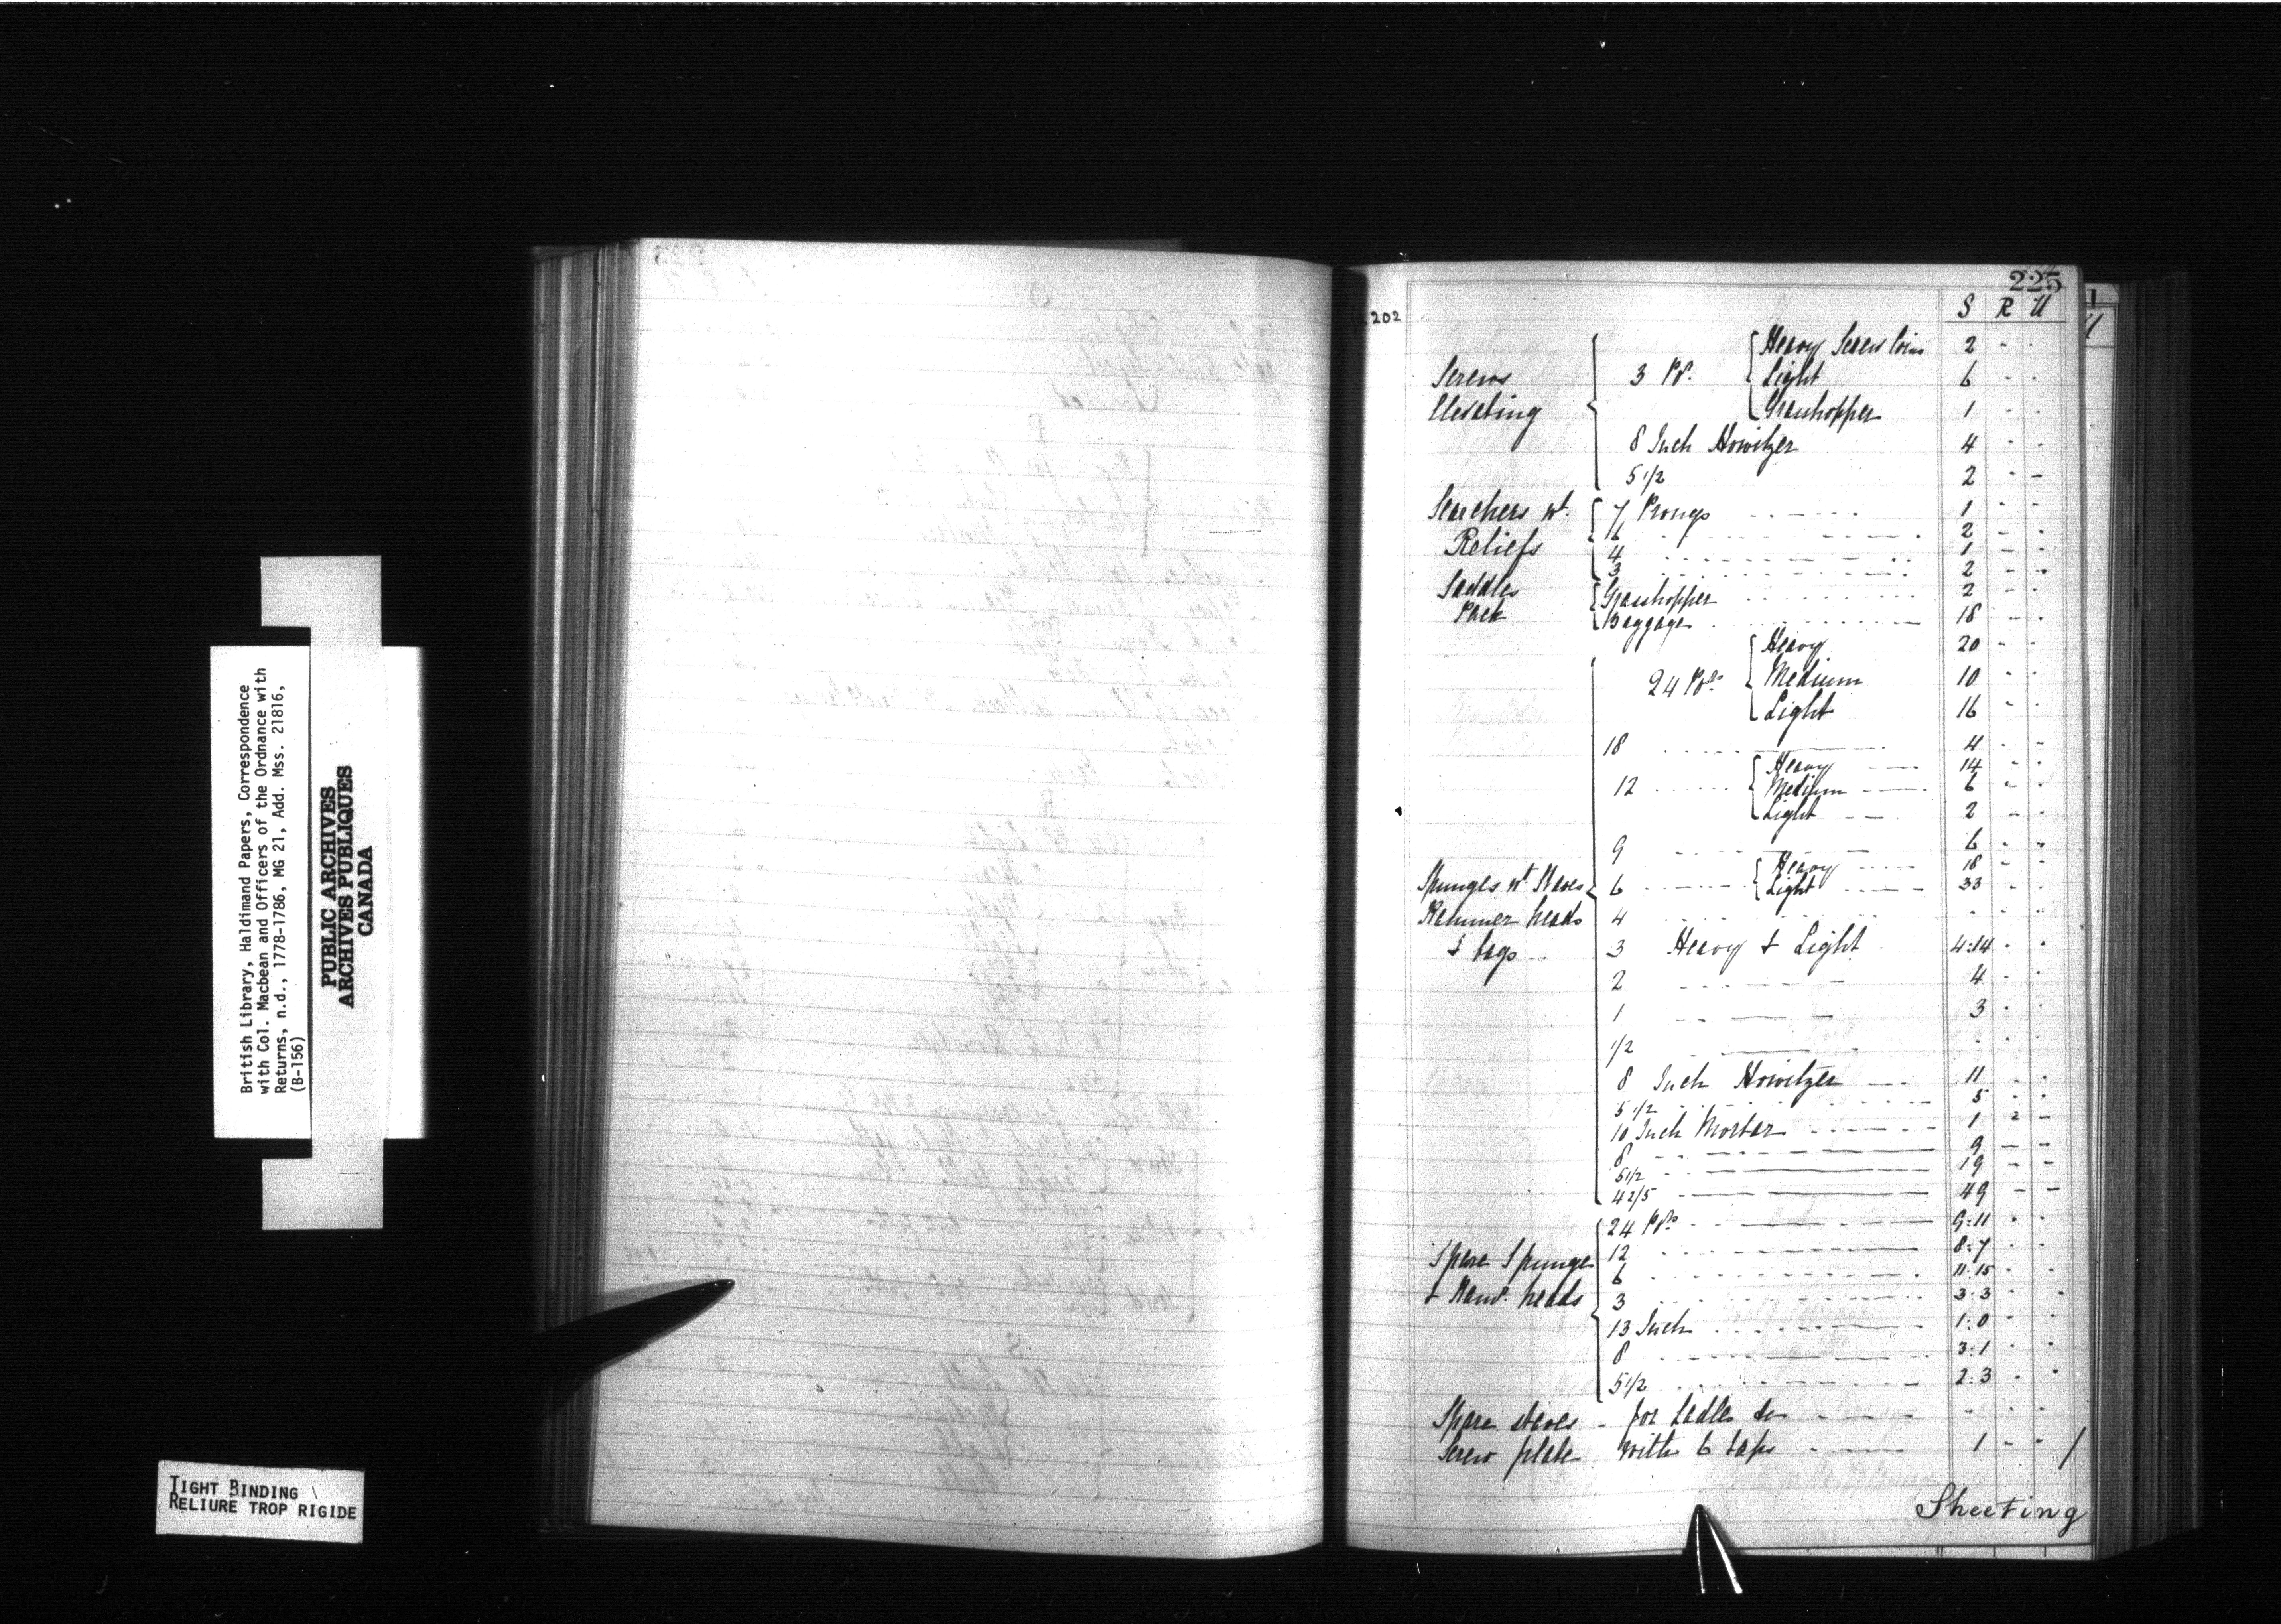 British Library, Haldimand Papers, Correspondence
with Col. Macbean and Officers of the Ordnance with
Returns, n.d., 1778-1786, MG 21, Add. Mss. 21816,
(B-156)
PUBLIC ARCHIVES
ARCHIVES PUBLIQUES
CANADA
TIGHT BINDING
RELIURE TROP RIGIDE
225
202
S R U
Heavy Screw Coin 2 - -
Screws 3 Pr. Light 6 - -
Elevating Grasshopper 1 - -
8 Inch Howitzer 4 - -
5 1/2 2 - -
Searchers wt. 7 Prongs 1 - -
6 2 - -
Reliefs 4 1 - -
3 2 - -
Saddles Grasshopper 2 - -
Pack Baggage 18 - -
Heavy 20 - -
24 Prs Medium 10 - -
Light 16 - -
18 4 - -
Heavy 14 - -
12 Medium 6 - -
Light 2 - -
9 6 - -
Heavy 18 - -
Spunges wt. Staves 6 Light 33 - -
Rammer heads 4 - - -
& bags 3 Heavy & Light 4:14 - -
2 4 - -
1 3 - -
1/2 - - -
8 Inch Howitzer 11 - -
5 1/2 5 - -
10 Inch Mortar 1 2 -
8 9 - -
5 1/2 19 - -
4 2/5 49 - -
24 Prs 9:11 - -
Spare Spunge 12 8:7 - -
6 11:15 - -
& Ramr. heads 3 3:3 - -
13 Inch 1:0 - -
8 3:1 - -
5 1/2 2:3 - -
Spare staves - for Ladles &c - - -
Screw plate with 6 taps 1 - -
Sheeting